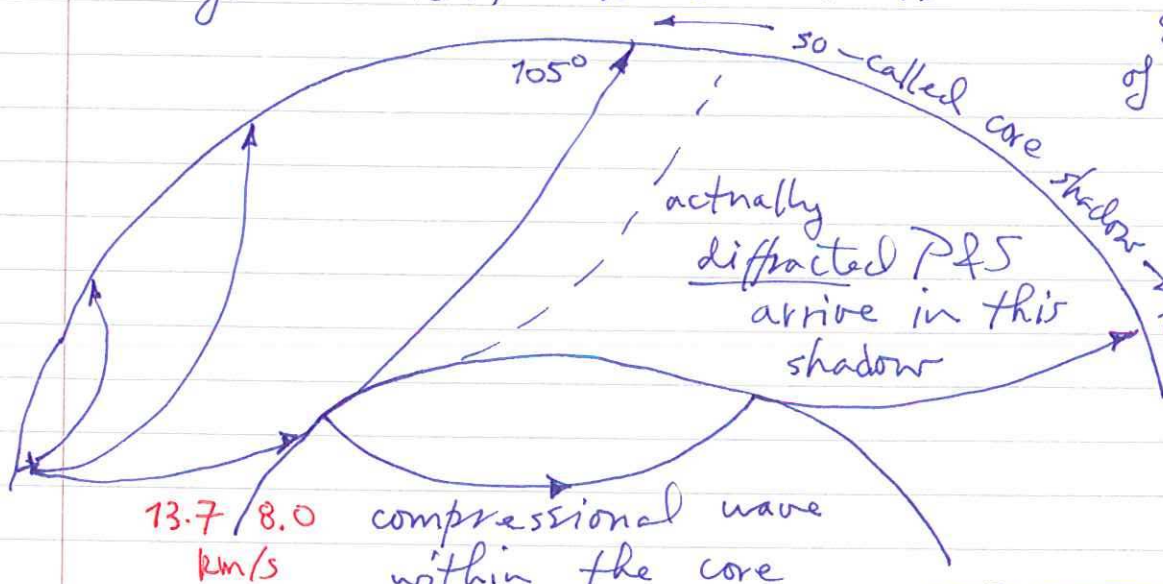 105°
so-called core shadow
of
actually
diffracted P&S
arrive in this
shadow
13.7 / 8.0
km/s
compressional wave
within the core